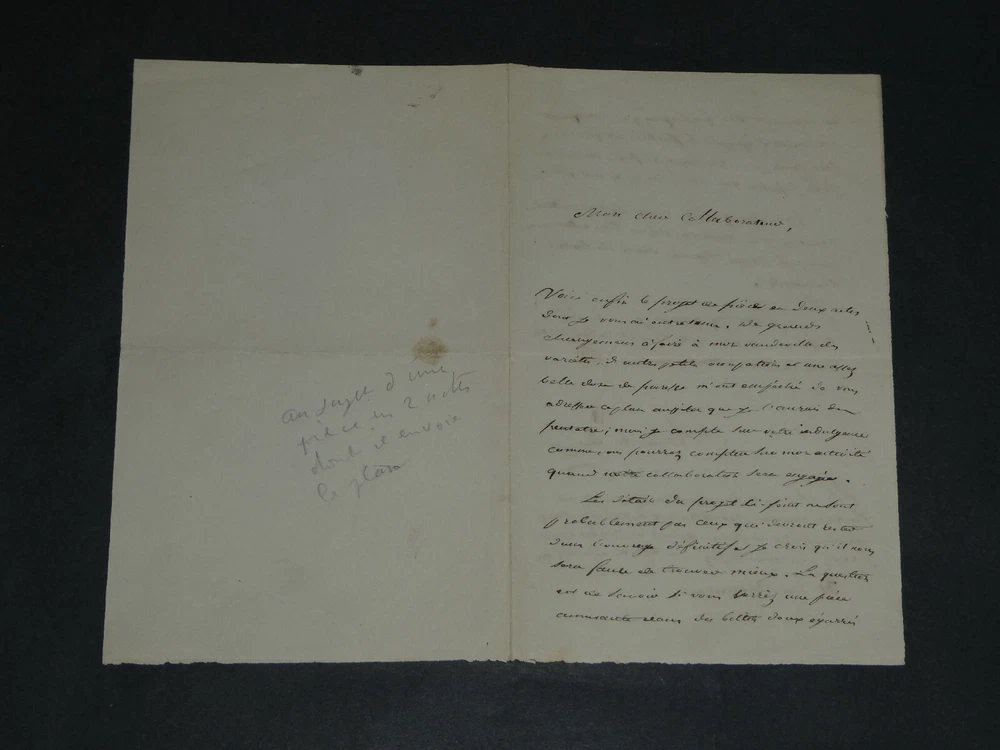 au sujet d'une
pièce en 2 actes
dont il envoie
le plan
Mon cher Collaborateur,
Voici enfin le projet de pièce en deux actes
dont je vous ai entretenu. De grands
changemens à faire à mon vaudeville des
variétés, d'autres petites occupations et une assez
belle dose de paresse m'ont empêché de vous
adresser ce plan aussitôt que je l'aurais du
peutetre; mais je compte sur votre indulgence
comme vous pourrez compter sur mon activité
quand notre collaboration sera engagée.
Les détails du projet ci-joint ne sont
probablement pas ceux qui devront rester
dans l'ouvrage définitif et je crois qu'il nous
sera facile de trouver mieux. La question
est de savoir si vous verrez une pièce
amusante dans les